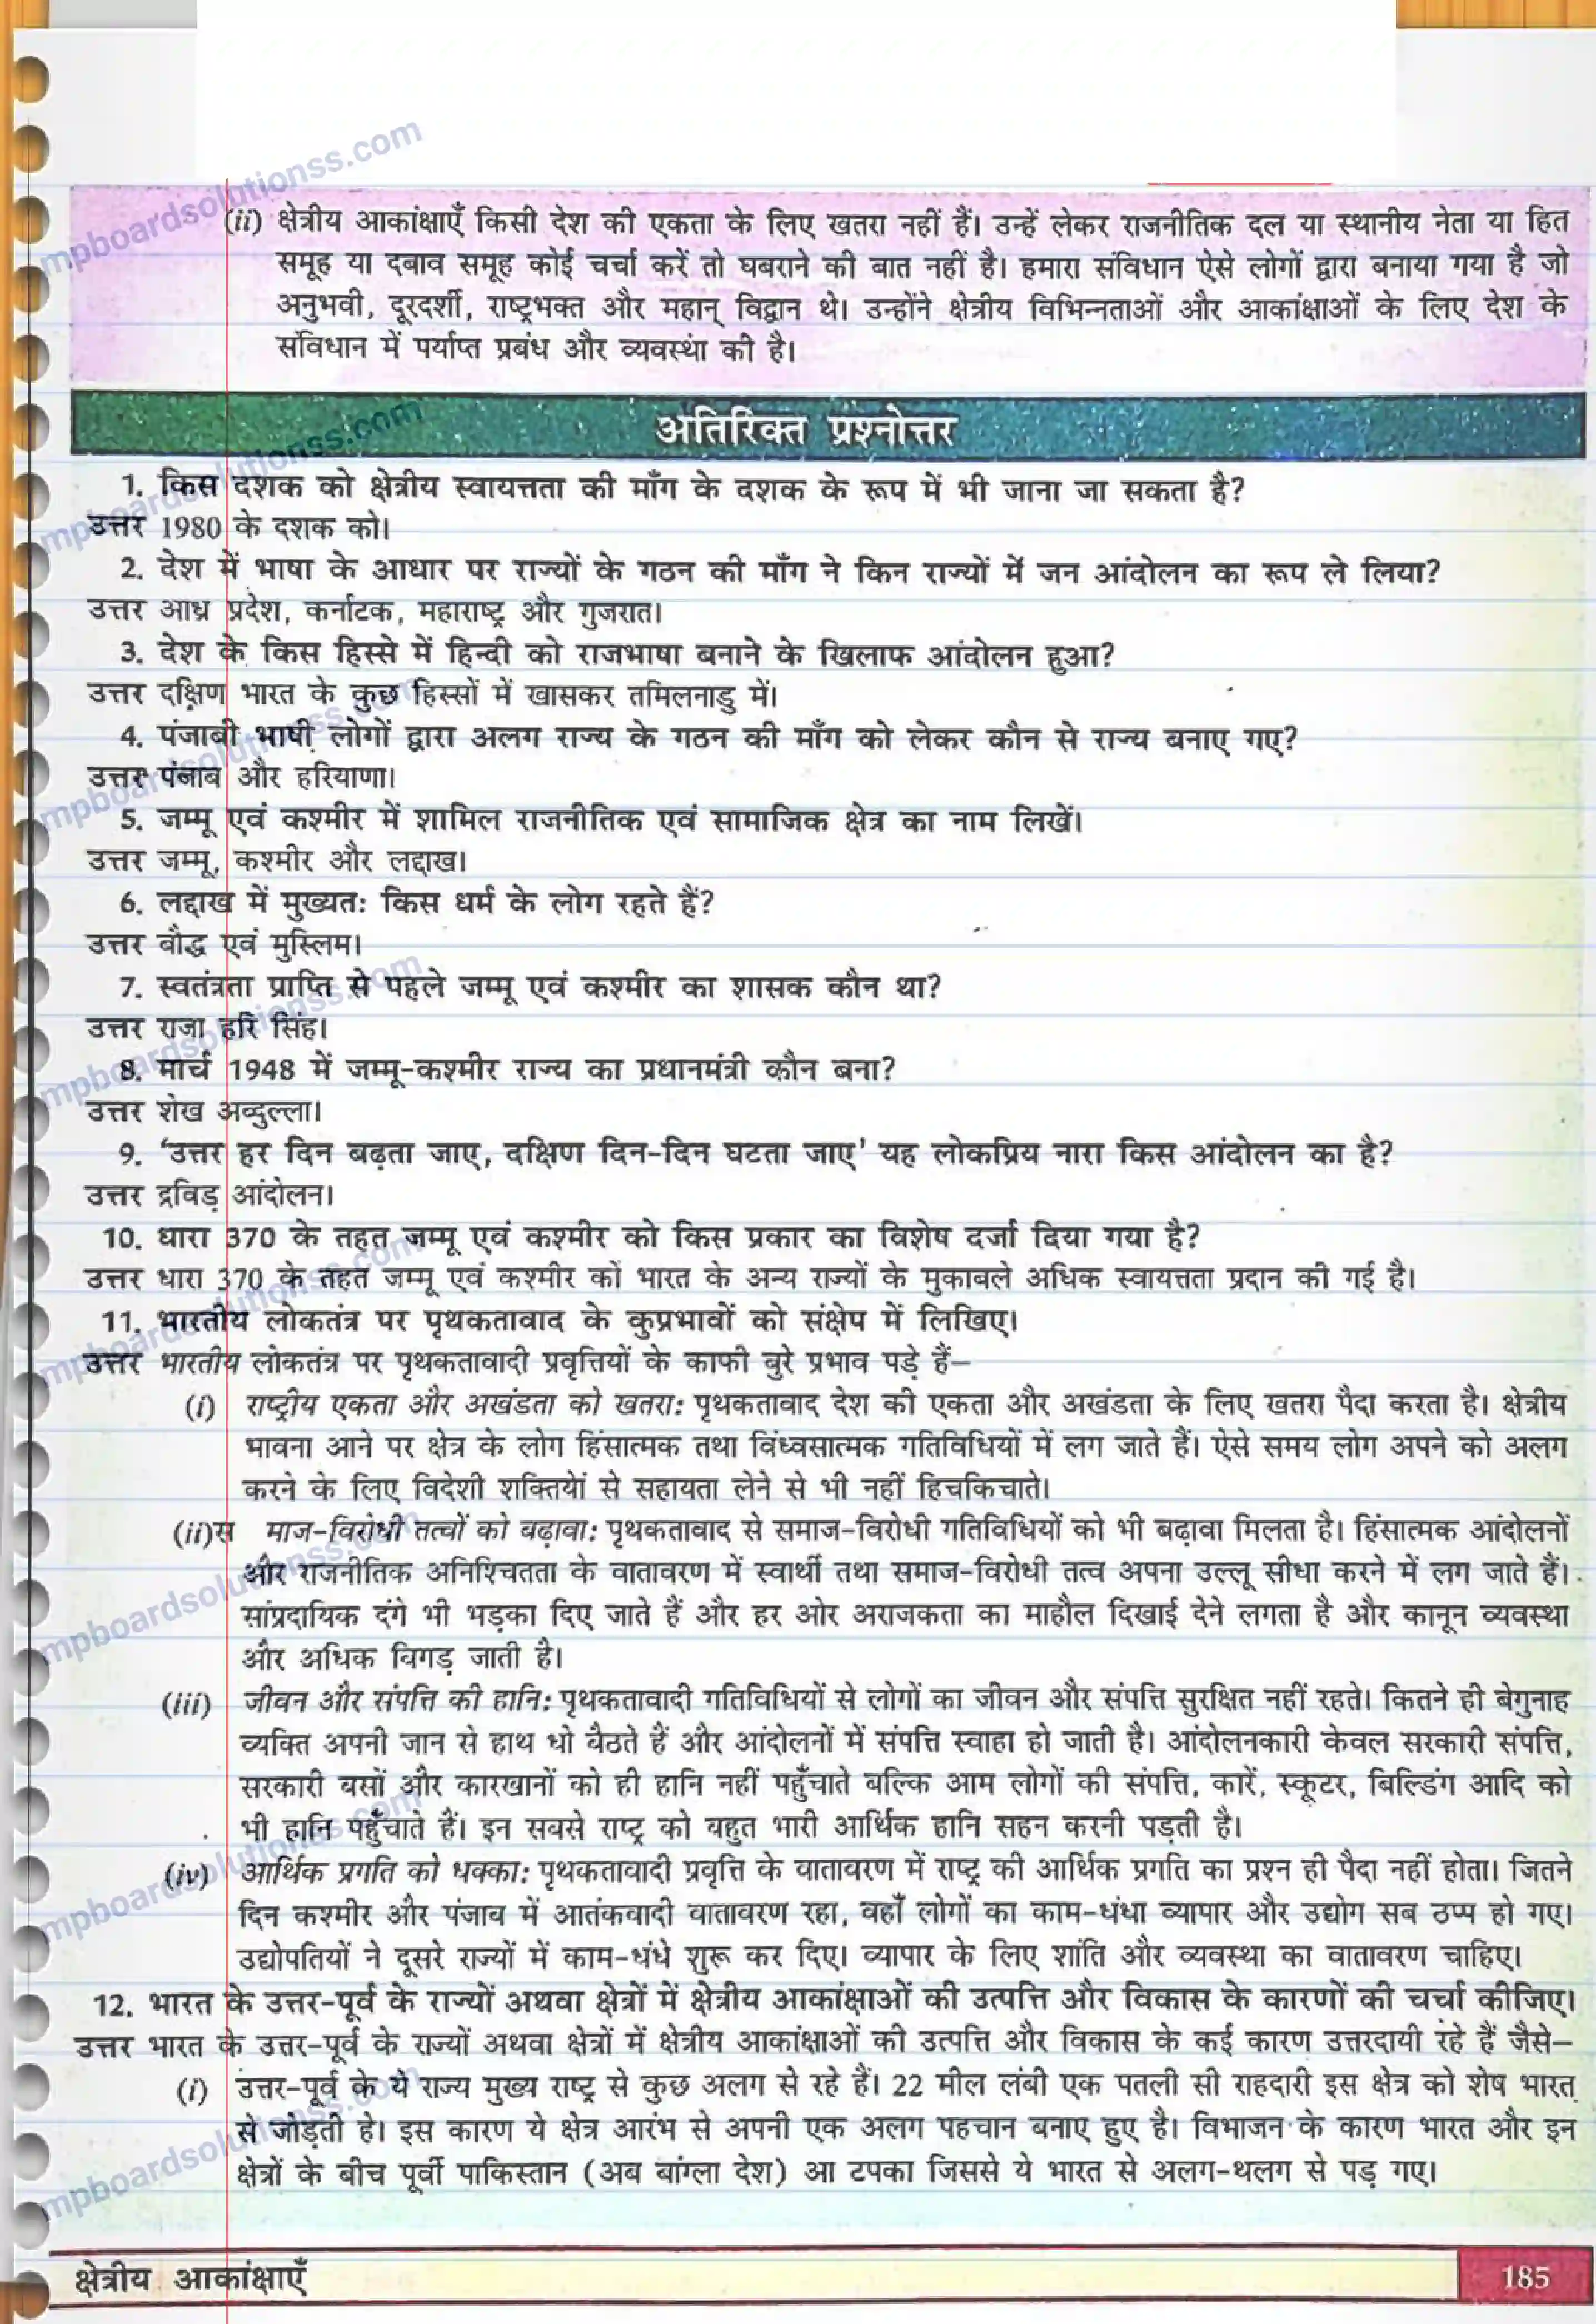 (ii) क्षेत्रीय आकांक्षाएँ किसी देश की एकता के लिए खतरा नहीं हैं। उन्हें लेकर राजनीतिक दल या स्थानीय नेता या हित
समूह या दबाव समूह कोई चर्चा करें तो घबराने की बात नहीं है। हमारा संविधान ऐसे लोगों द्वारा बनाया गया है जो
अनुभवी, दूरदर्शी, राष्ट्रभक्त और महान् विद्वान थे। उन्होंने क्षेत्रीय विभिन्नताओं और आकांक्षाओं के लिए देश के
संविधान में पर्याप्त प्रबंध और व्यवस्था की है।
अतिरिक्त प्रश्नोत्तर
1. किस दशक को क्षेत्रीय स्वायत्तता की माँग के दशक के रूप में भी जाना जा सकता है?
उत्तर 1980 के दशक को।
2. देश में भाषा के आधार पर राज्यों के गठन की माँग ने किन राज्यों में जन आंदोलन का रूप ले लिया?
उत्तर आध्र प्रदेश, कर्नाटक, महाराष्ट्र और गुजरात।
3. देश के किस हिस्से में हिन्दी को राजभाषा बनाने के खिलाफ आंदोलन हुआ?
उत्तर दक्षिण भारत के कुछ हिस्सों में खासकर तमिलनाडु में।
4. पंजाबी भाषी लोगों द्वारा अलग राज्य के गठन की माँग को लेकर कौन से राज्य बनाए गए?
उत्तर पंजाब और हरियाणा।
5. जम्मू एवं कश्मीर में शामिल राजनीतिक एवं सामाजिक क्षेत्र का नाम लिखें।
उत्तर जम्मू, कश्मीर और लद्दाख।
6. लद्दाख में मुख्यतः किस धर्म के लोग रहते हैं?
उत्तर बौद्ध एवं मुस्लिम।
7. स्वतंत्रता प्राप्ति से पहले जम्मू एवं कश्मीर का शासक कौन था?
उत्तर राजा हरि सिंह।
8. मार्च 1948 में जम्मू-कश्मीर राज्य का प्रधानमंत्री कौन बना?
उत्तर शेख अब्दुल्ला।
9. ‘उत्तर हर दिन बढ़ता जाए, दक्षिण दिन-दिन घटता जाए’ यह लोकप्रिय नारा किस आंदोलन का है?
उत्तर द्रविड़ आंदोलन।
10. धारा 370 के तहत जम्मू एवं कश्मीर को किस प्रकार का विशेष दर्जा दिया गया है?
उत्तर धारा 370 के तहत जम्मू एवं कश्मीर को भारत के अन्य राज्यों के मुकाबले अधिक स्वायत्तता प्रदान की गई है।
11. भारतीय लोकतंत्र पर पृथकतावाद के कुप्रभावों को संक्षेप में लिखिए।
उत्तर भारतीय लोकतंत्र पर पृथकतावादी प्रवृत्तियों के काफी बुरे प्रभाव पड़े हैं–
(i) राष्ट्रीय एकता और अखंडता को खतरा: पृथकतावाद देश की एकता और अखंडता के लिए खतरा पैदा करता है। क्षेत्रीय
भावना आने पर क्षेत्र के लोग हिंसात्मक तथा विंध्वसात्मक गतिविधियों में लग जाते हैं। ऐसे समय लोग अपने को अलग
करने के लिए विदेशी शक्तियों से सहायता लेने से भी नहीं हिचकिचाते।
(ii)स माज-विरोधी तत्वों को बढ़ावा: पृथकतावाद से समाज-विरोधी गतिविधियों को भी बढ़ावा मिलता है। हिंसात्मक आंदोलनों
और राजनीतिक अनिश्चितता के वातावरण में स्वार्थी तथा समाज-विरोधी तत्व अपना उल्लू सीधा करने में लग जाते हैं।
सांप्रदायिक दंगे भी भड़का दिए जाते हैं और हर ओर अराजकता का माहौल दिखाई देने लगता है और कानून व्यवस्था
और अधिक बिगड़ जाती है।
(iii) जीवन और संपत्ति की हानि: पृथकतावादी गतिविधियों से लोगों का जीवन और संपत्ति सुरक्षित नहीं रहते। कितने ही बेगुनाह
व्यक्ति अपनी जान से हाथ धो बैठते हैं और आंदोलनों में संपत्ति स्वाहा हो जाती है। आंदोलनकारी केवल सरकारी संपत्ति,
सरकारी बसों और कारखानों को ही हानि नहीं पहुँचाते बल्कि आम लोगों की संपत्ति, कारें, स्कूटर, बिल्डिंग आदि को
भी हानि पहुँचाते हैं। इन सबसे राष्ट्र को बहुत भारी आर्थिक हानि सहन करनी पड़ती है।
(iv) आर्थिक प्रगति को धक्का: पृथकतावादी प्रवृत्ति के वातावरण में राष्ट्र की आर्थिक प्रगति का प्रश्न ही पैदा नहीं होता। जितने
दिन कश्मीर और पंजाब में आतंकवादी वातावरण रहा, वहाँ लोगों का काम-धंधा व्यापार और उद्योग सब ठप्प हो गए।
उद्योपतियों ने दूसरे राज्यों में काम-धंधे शुरू कर दिए। व्यापार के लिए शांति और व्यवस्था का वातावरण चाहिए।
12. भारत के उत्तर-पूर्व के राज्यों अथवा क्षेत्रों में क्षेत्रीय आकांक्षाओं की उत्पत्ति और विकास के कारणों की चर्चा कीजिए।
उत्तर भारत के उत्तर-पूर्व के राज्यों अथवा क्षेत्रों में क्षेत्रीय आकांक्षाओं की उत्पत्ति और विकास के कई कारण उत्तरदायी रहे हैं जैसे–
(i) उत्तर-पूर्व के ये राज्य मुख्य राष्ट्र से कुछ अलग से रहे हैं। 22 मील लंबी एक पतली सी राहदारी इस क्षेत्र को शेष भारत
से जोड़ती हे। इस कारण ये क्षेत्र आरंभ से अपनी एक अलग पहचान बनाए हुए है। विभाजन के कारण भारत और इन
क्षेत्रों के बीच पूर्वी पाकिस्तान (अब बांग्ला देश) आ टपका जिससे ये भारत से अलग-थलग से पड़ गए।
क्षेत्रीय आकांक्षाएँ
185
mpboardsolutionss.com
mpboardsolutionss.com
mpboardsolutionss.com
mpboardsolutionss.com
mpboardsolutionss.com
mpboardsolutionss.com
mpboardsolutionss.com
mpboardsolutionss.com